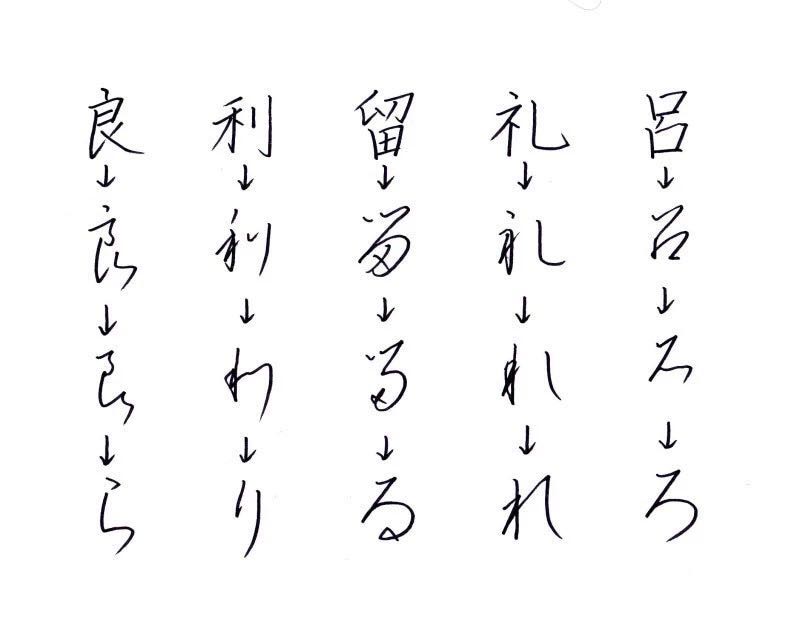 良 利 留 礼 呂
↓ ↓ ↓ ↓ ↓
良 利 留 礼 呂
↓ ↓ ↓ ↓ ↓
良 利 留 礼 呂
↓ ↓ ↓ ↓ ↓
ら り る れ ろ